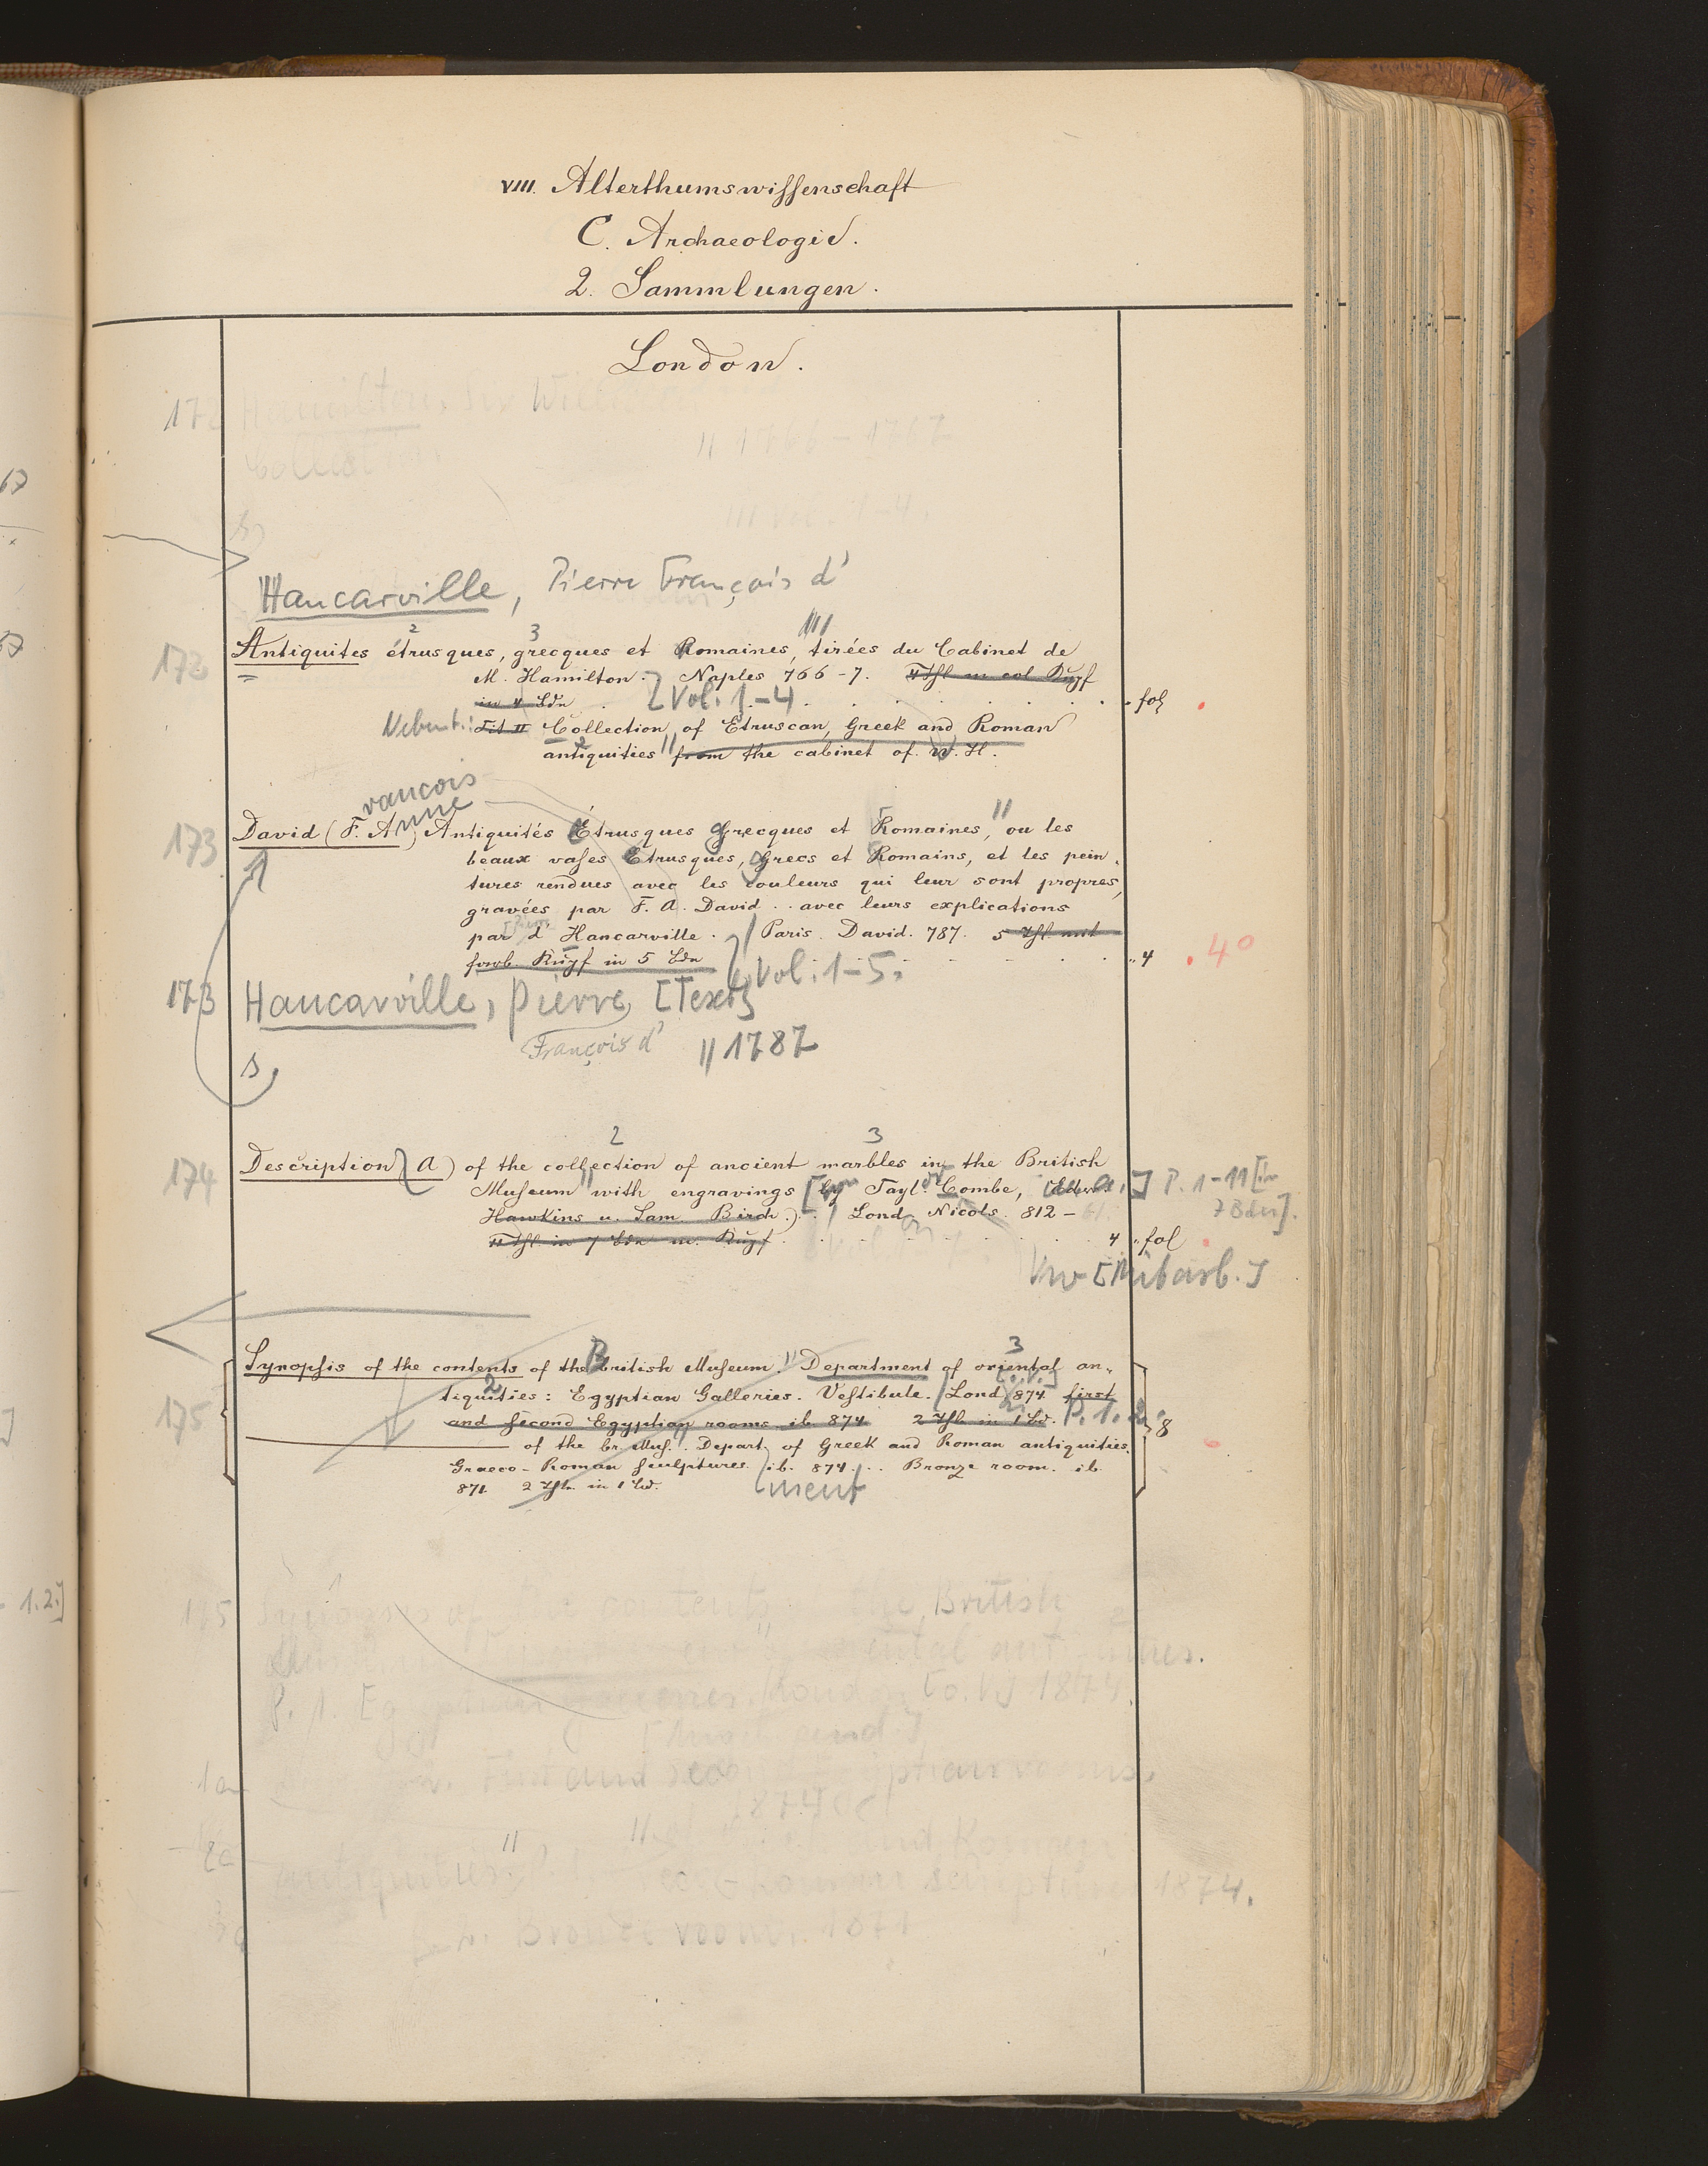 VIII. Alterthumswissenschaft
C. Archaeologie.
2. Sammlungen.
London.
172 Hamilton, Sir William
Collection
// 1766-1767
/// vol. 1-4.
Hancarville, Pierre François d'
172 Antiquites étrusques, grecques et Romaines, tirées du Cabinet de
M. Hamilton. Naples 766-7. 4 Thl m col Kupf
in 4 Bdn [Vol. 1-4 fol
Nebent.: Tit II Collection of Etruscan, Greek and Roman
antiquities from the cabinet of W. H.
rancois
nne
173 David (F. A) Antiquités Étrusques Grecques et Romaines, ou les
beaux vases Etrusques, Grecs et Romains, et les pein-
tures rendues avec les couleurs qui leur sont propres,
gravées par F. A. David .. avec leurs explications
par d'Hancarville. Paris. David. 787. 5 Thl mit
farb. Kupf in 5 Bdn Vol. 1-5. 4 4°
173 Hancarville, Pierre [Text]
François d' // 1787
s,
174 Description (A) of the collection of ancient marbles in the British
Museum with engravings [by Tayl. Combe, Edw. P. 1-11 [in
Hawkins u. Sam. Birch.) Lond. Nicols. 812- 7 Bdn].
11 Thl in 7 Bdn m. Kupf. 4 fol
Vw [Mitarb.]
Synopsis of the contents of the British Museum. Department of oriental an-
175 tiquities: Egyptian Galleries. Vestibule. Lond 874. first
and second Egyptian rooms ib. 874. 2 Thle in 1 Bd. P. 1. 2. 8
of the br. Mus. Depart. of Greek and Roman antiquities.
Graeco-Roman sculptures. ib. 874... Bronze room. ib.
871 2 Thle in 1 Bd. ment
1.2.]
175 Synopsis of the contents of the British
Department of oriental antiquities.
P. 1. Egyptian galleries. London [o. V.] 1874.
First and second Egyptian rooms.
1874
and Roman
antiquities. sculptures 1874.
Bronze room. 1871